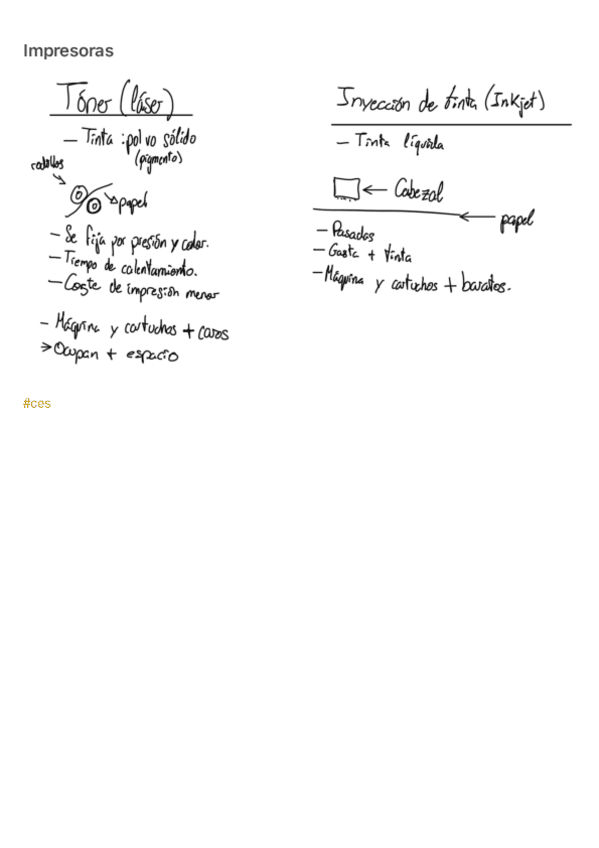 Impresoras
Tóner (láser)
- Tinta : polvo sólido
(pigmento)
rodillos
papel
- Se fija por presión y calor.
- Tiempo de calentamiento.
- Coste de impresión menor
- Máquina y cartuchos + caros
→ Ocupan + espacio
Inyección de tinta (Inkjet)
- Tinta líquida
← Cabezal
← papel
- Pasadas
- Gasta + tinta
- Máquina y cartuchos + baratos.
#ces